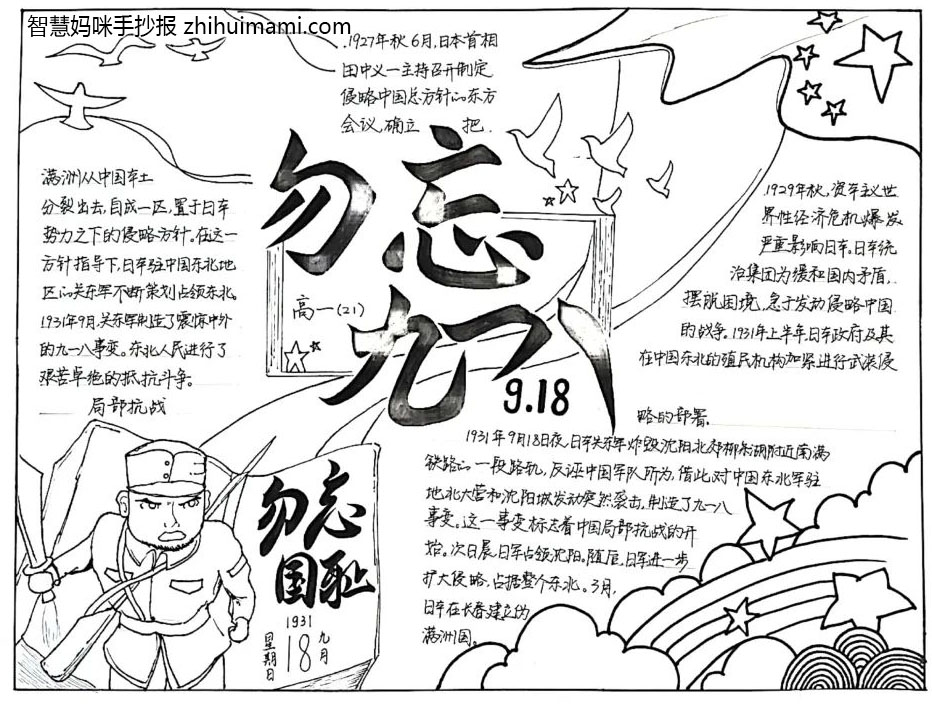 智慧妈咪手抄报 zhihuimami.com
.1927年秋6月,日本首相
田中义一主持召开制定
侵略中国总方针的东方
会议,确立 把.
勿忘
九一八
9.18
高一(21)
满洲从中国本土
分裂出去,自成一区,置于日本
势力之下的侵略方针。在这一
方针指导下,日本驻中国东北地
区的关东军不断策划占领东北。
1931年9月,关东军制造了震惊中外
的九一八事变。东北人民进行了
艰苦卓绝的抵抗斗争。
局部抗战
.1929年秋,资本主义世
界性经济危机爆发
严重影响日本。日本统
治集团为缓和国内矛盾,
摆脱困境,急于发动侵略中国
的战争。1931年上半年日本政府及其
在中国东北的殖民机构加紧进行武装侵
略的部署.
1931年9月18日夜,日本关东军炸毁沈阳北郊柳条湖附近南满
铁路的一段路轨,反诬中国军队所为,借此对中国东北军驻
地北大营和沈阳城发动突然袭击,制造了九一八
事变。这一事变标志着中国局部抗战的开
始。次日晨日军占领沈阳。随后,日军进一步
扩大侵略,占据整个东北。3月,
日本在长春建立的
满洲国。
勿忘
国耻
1931
九月
18
星期日